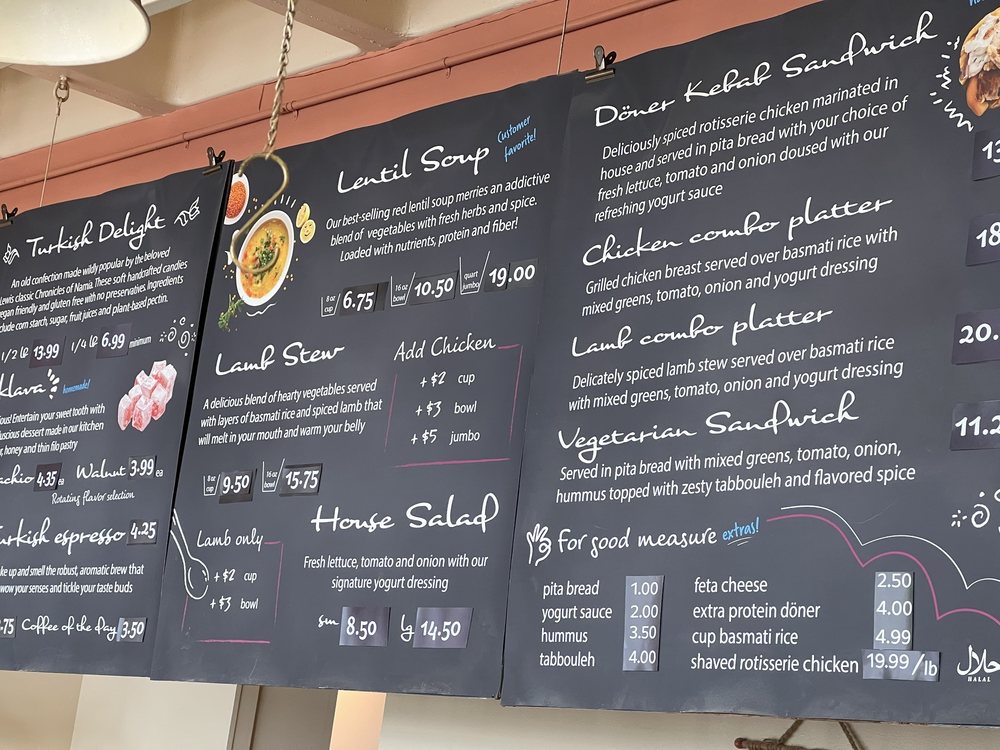 Turkish Delight
An old confection made wildly popular by the beloved
Lewis classic Chronicles of Narnia. These soft handcrafted candies
vegan friendly and gluten free with no preservatives. Ingredients
include corn starch, sugar, fruit juices and plant-based pectin.
1/2 lb 13.99 1/4 lb 6.99 minimum
klava homemade!
Entertain your sweet tooth with
luscious dessert made in our kitchen
honey and thin filo pastry
achio 4.35 ea Walnut 3.99 ea
Rotating flavor selection
urkish espresso 4.25
ke up and smell the robust, aromatic brew that
wow your senses and tickle your taste buds
.75 Coffee of the day 3.50
Lentil Soup
Customer
favorite!
Our best-selling red lentil soup merries an addictive
blend of vegetables with fresh herbs and spice.
Loaded with nutrients, protein and fiber!
8 oz cup 6.75 16 oz bowl 10.50 quart jumbo 19.00
Lamb Stew
A delicious blend of hearty vegetables served
with layers of basmati rice and spiced lamb that
will melt in your mouth and warm your belly
8 oz cup 9.50 16 oz bowl 15.75
Add Chicken
+ $2 cup
+ $3 bowl
+ $5 jumbo
Lamb only
+ $2 cup
+ $3 bowl
House Salad
Fresh lettuce, tomato and onion with our
signature yogurt dressing
sm 8.50 lg 14.50
Döner Kebab Sandwich
Deliciously spiced rotisserie chicken marinated in
house and served in pita bread with your choice of
fresh lettuce, tomato and onion doused with our
refreshing yogurt sauce
13
Chicken combo platter
Grilled chicken breast served over basmati rice with
mixed greens, tomato, onion and yogurt dressing
18
Lamb combo platter
Delicately spiced lamb stew served over basmati rice
with mixed greens, tomato, onion and yogurt dressing
20.
Vegetarian Sandwich
Served in pita bread with mixed greens, tomato, onion,
hummus topped with zesty tabbouleh and flavored spice
11.2
For good measure extras!
pita bread 1.00
yogurt sauce 2.00
hummus 3.50
tabbouleh 4.00
feta cheese 2.50
extra protein döner 4.00
cup basmati rice 4.99
shaved rotisserie chicken 19.99/lb
حلال
HALAL